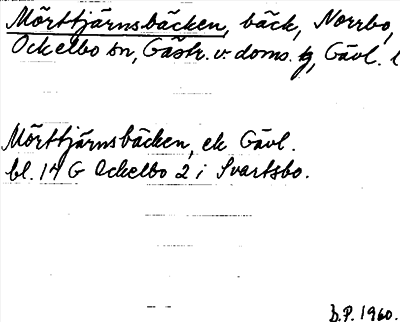 Mörttjärnsbäcken, bäck, Norrbo,
Ockelbo sn, Gästr. v. doms. tg, Gävl. l
Mörttjärnsbäcken, ek Gävl.
bl. 14 G Ockelbo 2 i Svartsbo.
B.P. 1960.